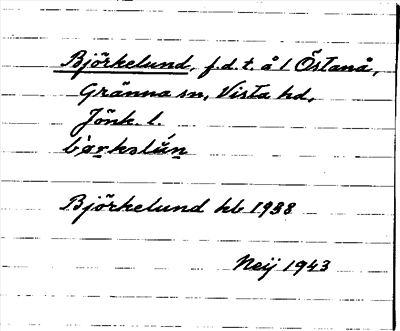 Björkelund, f.d.t. å 1 Östanå,
Gränna sn, Vista hd,
Jönk. l.
Björkelund hb 1938
Neij 1943